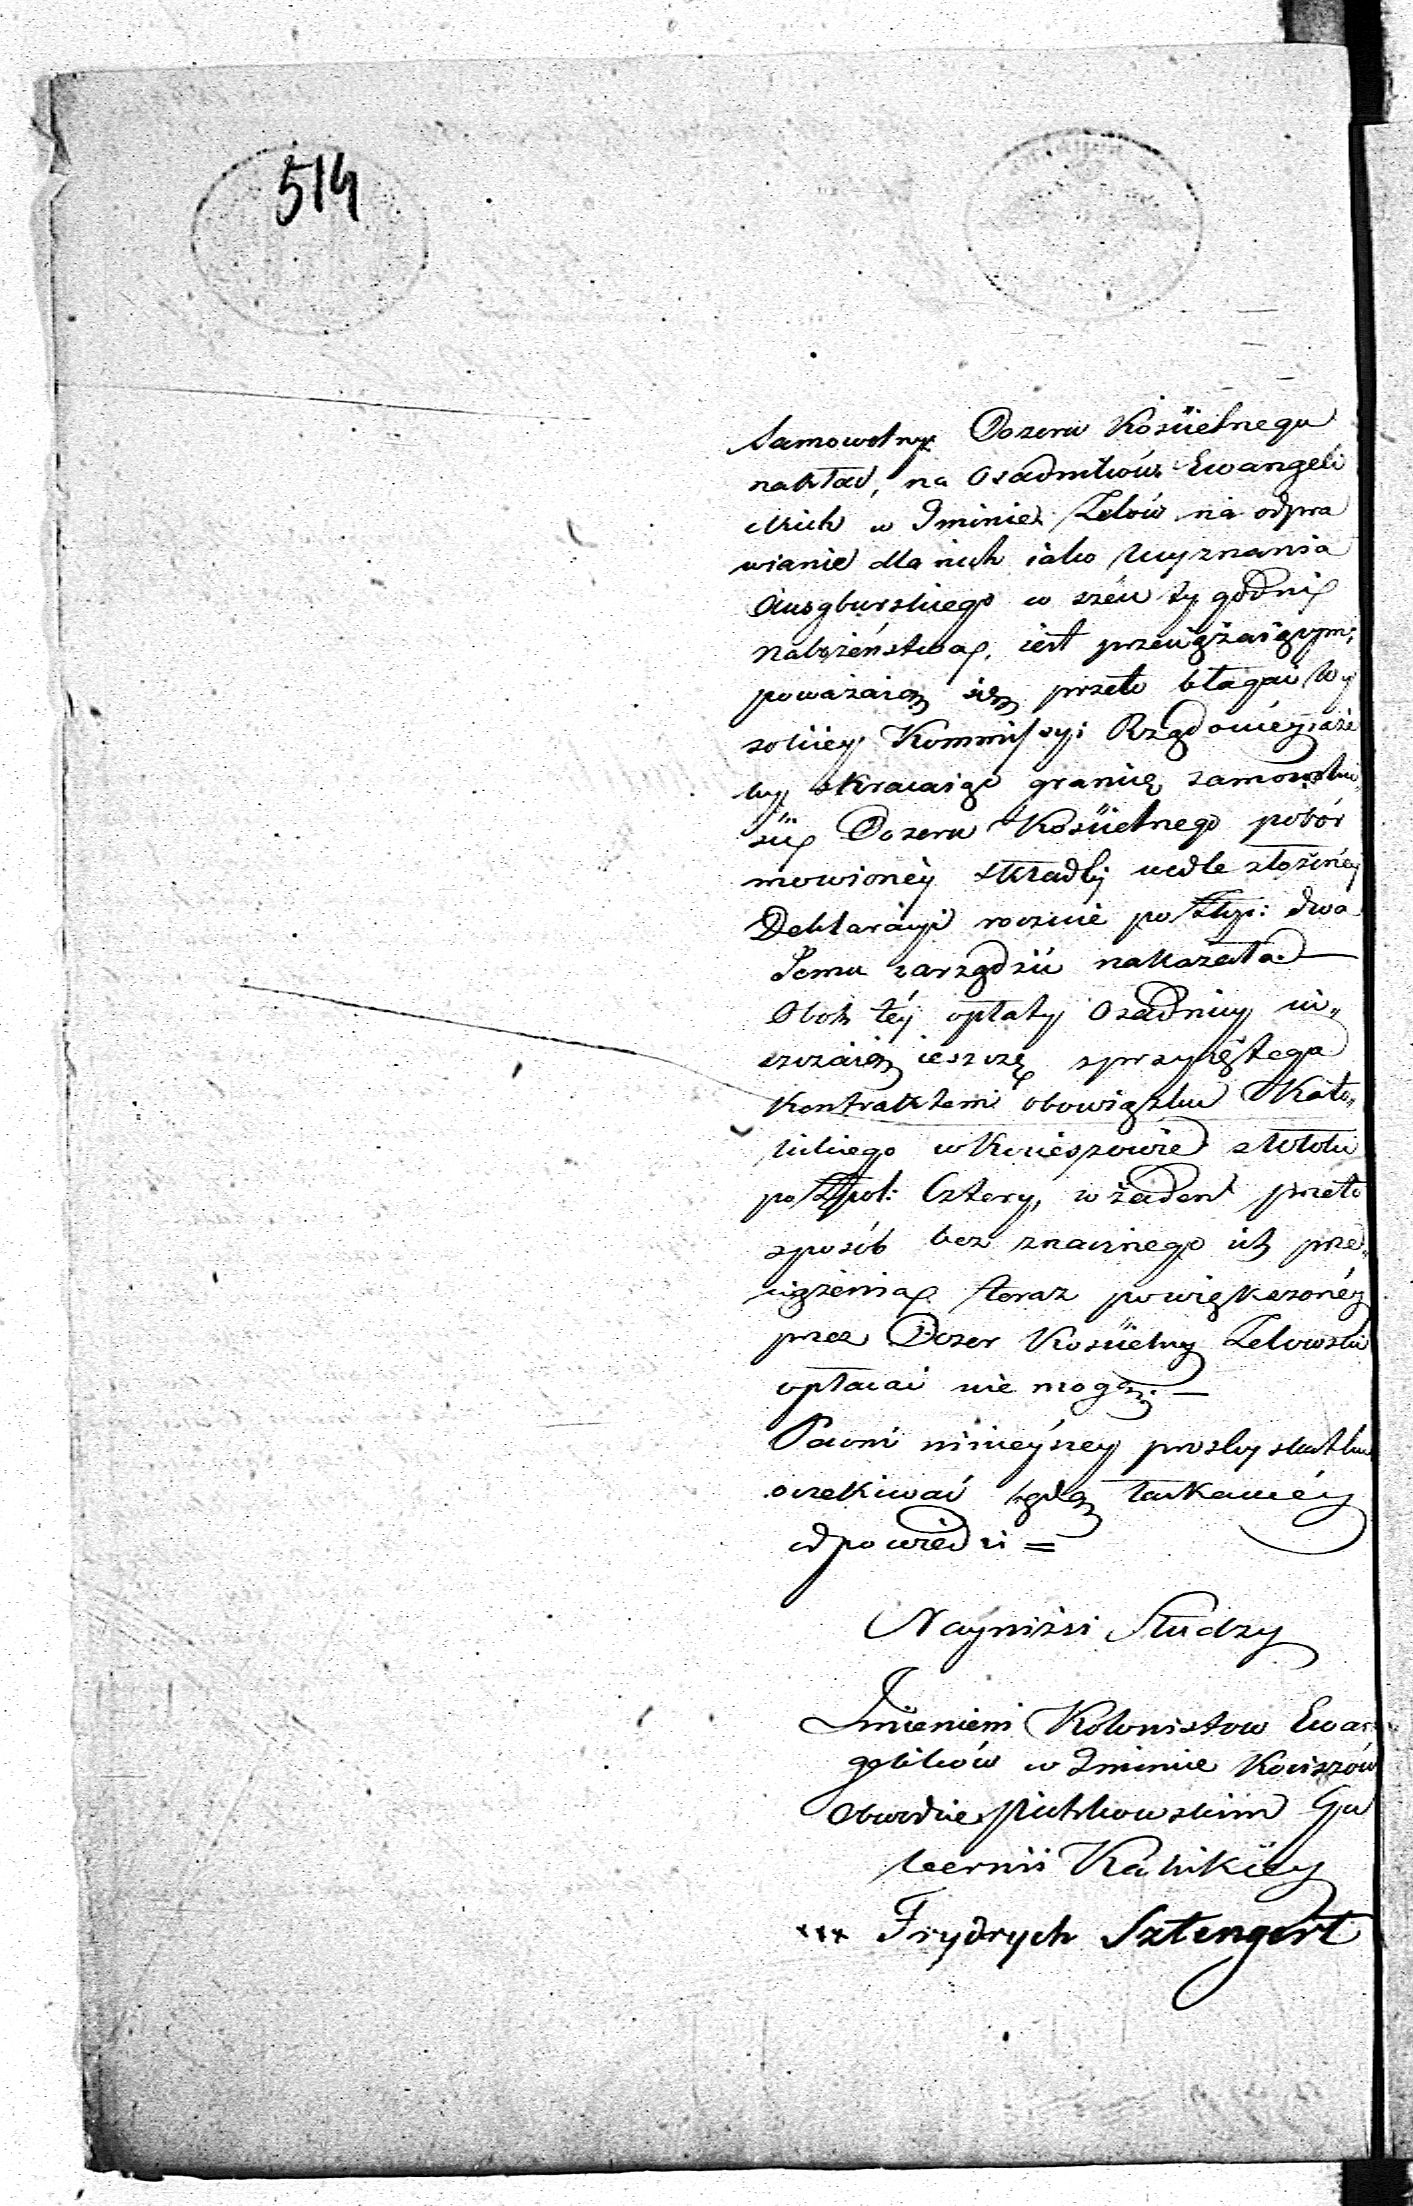 514
Samowolny Dozoru Kościelnego
nakład, na Osadników Ewangeli
ckich w Gminie Zelów na odpra
wianie dla nich iako wyznania
Ausgburskiego w sześć tygodni
nabożeństwa, iest przeciążaiącym;
poważaią się przeto błagać Wy
sokiey Kommissyi Rządowéy, aże
by skracaiąc granicę samowolno
ści Dozoru Kościelnego pobór
mowionéy składki wedle złożonéy
Deklaracyi rocznie po Złp: dwa
Temu zarządzić nakazała.—
Obok téy opłaty Osadnicy ui„
szczaią ieszcze z przyiętego
Kontraktem obowiązku Kato„
lickiego w Kociszowie z Włoki
po Złpol: Cztery, w żaden przeto
sposób bez znacznego ich prze„
ciążenia teraz powiększonéy
przez Dozor Kościelny Zelowski
opłacać nie mogą.—
Pewni ninieyszey prozby skutku
oczekiwać będą łaskawéy
odpowiedzi =
Nayniżsi Słudzy
Imieniem Kolonistow Ewan
gelików w Gminie Kociszów
Obwodzie Piotrkowskim Gu
bernii Kaliskiéy
××× Frydrych Sztengert